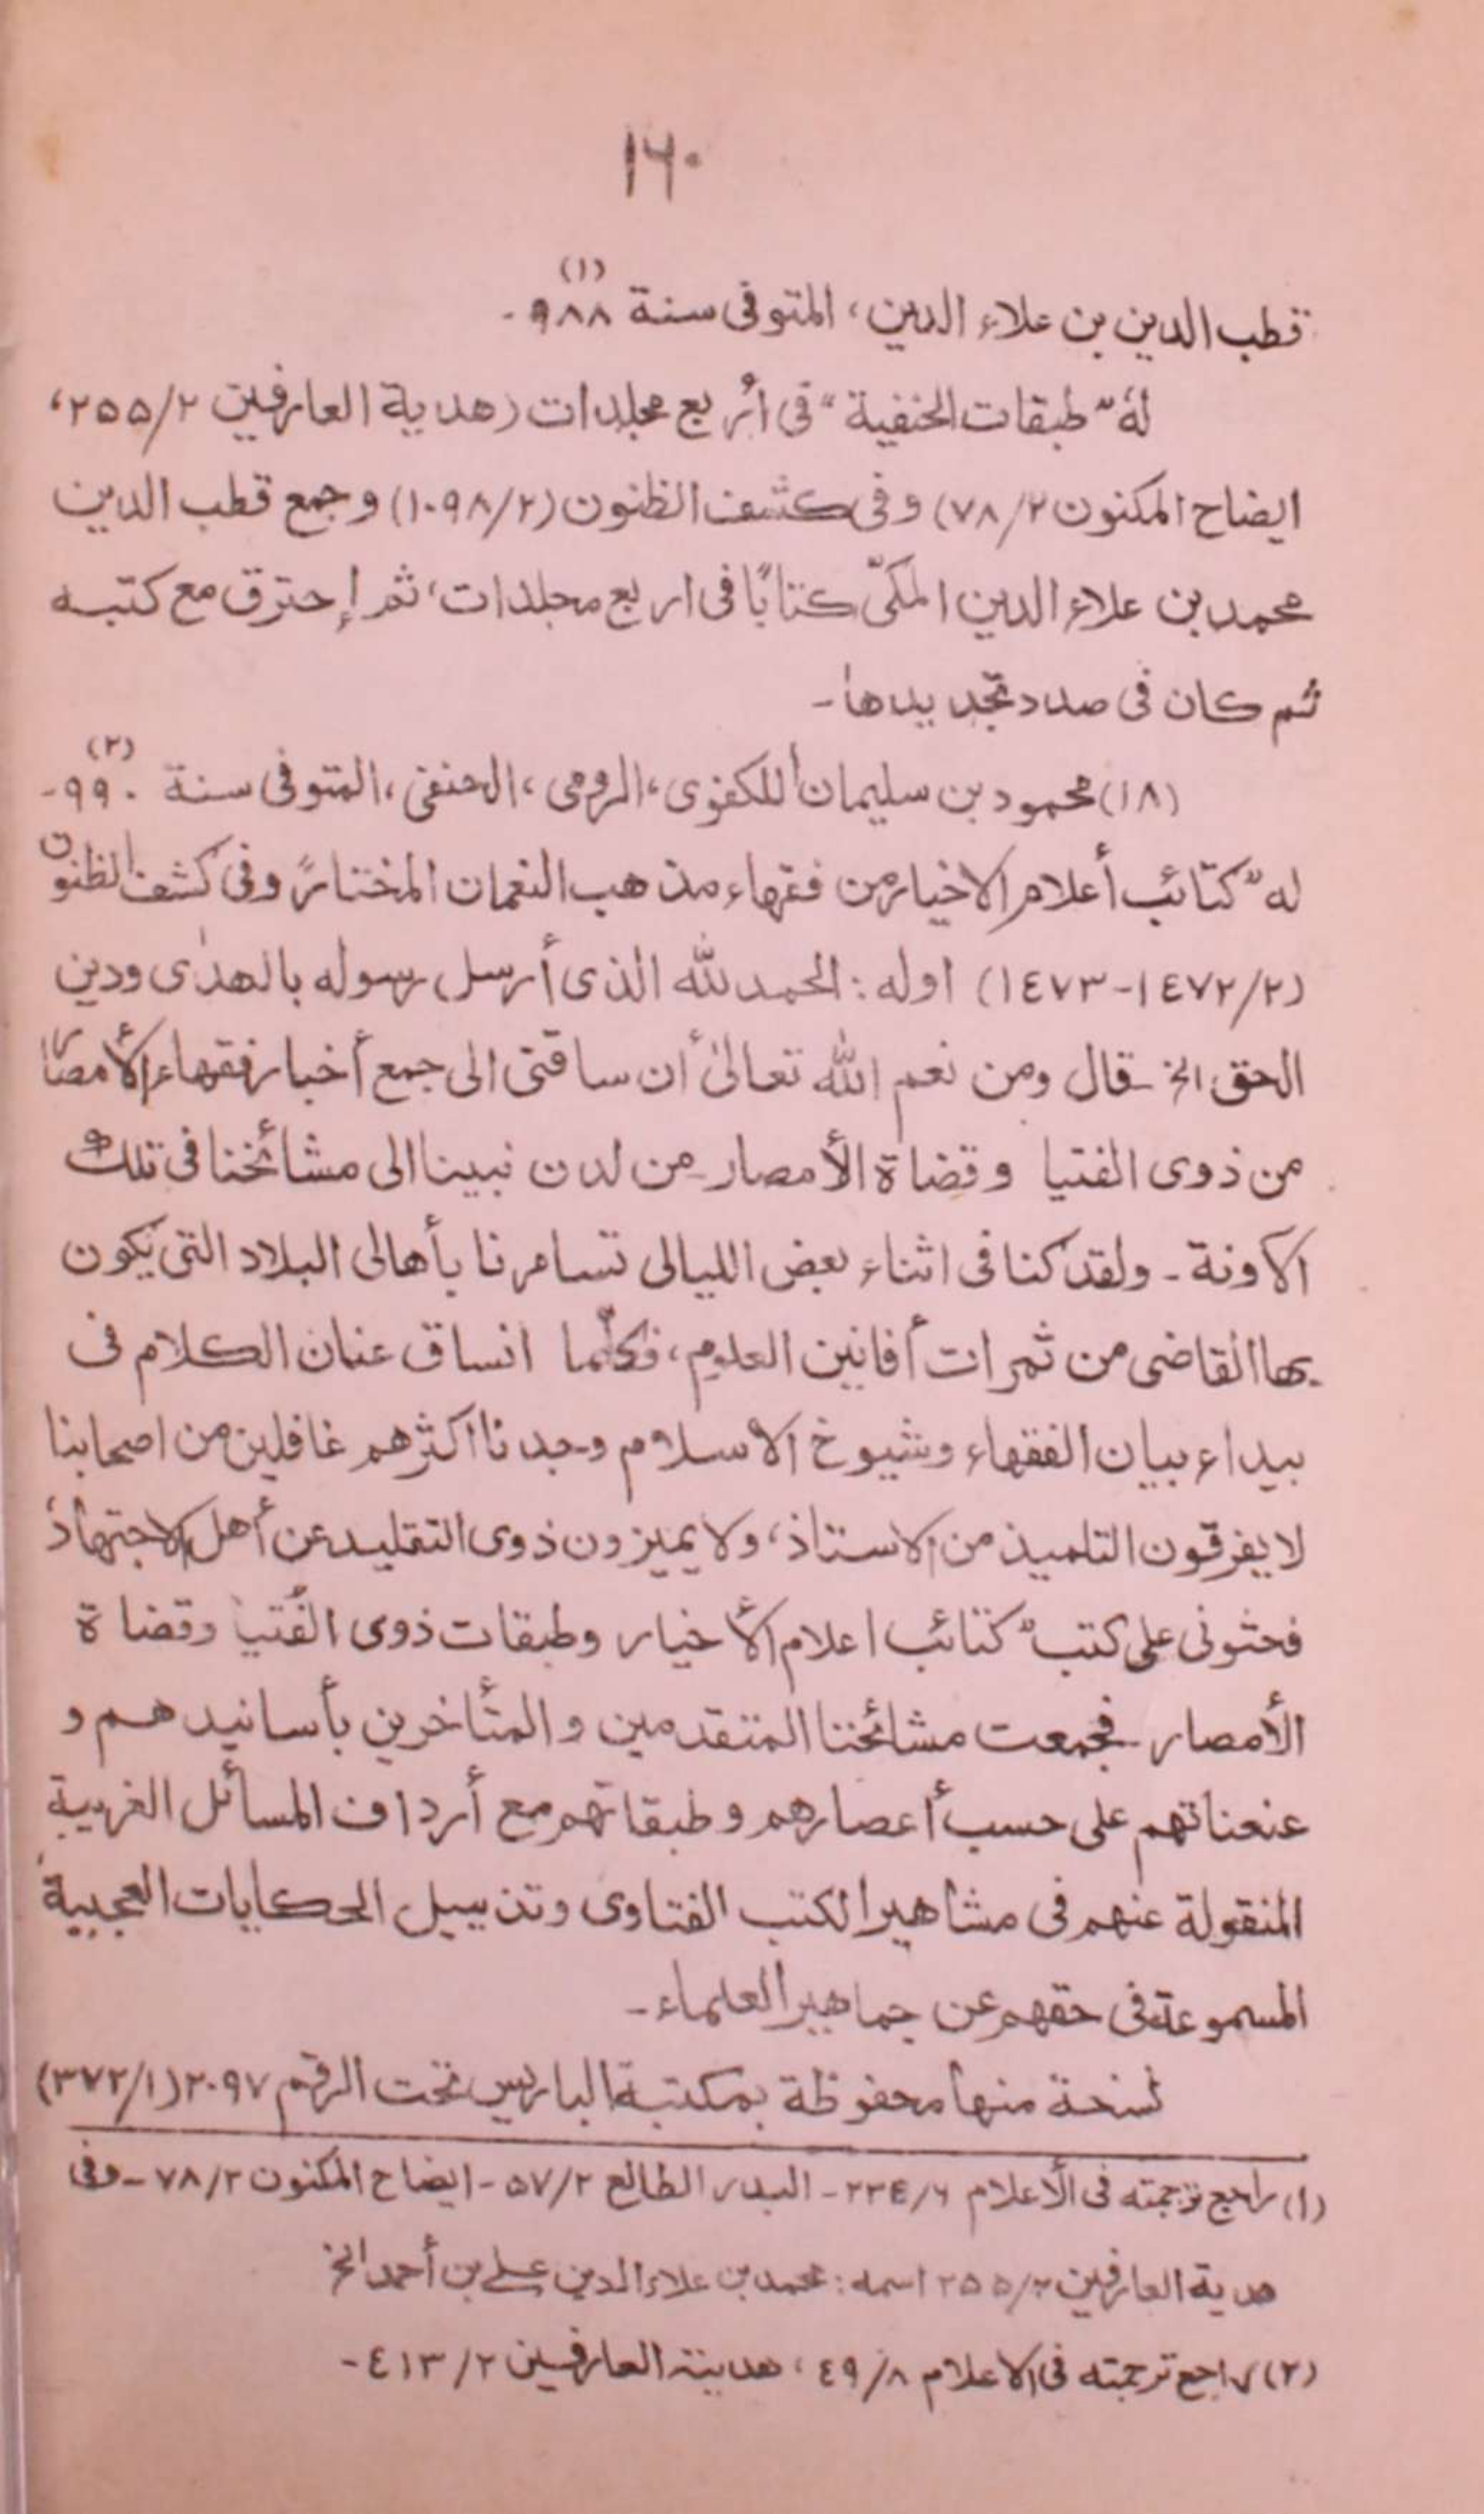 ١٦٠
قطب الدين بن علاء الدين، المتوفى سنة ٩٨٨ (١)-
لهٗ "طبقات الحنفية" فى أربع مجلدات (هدية العارفين ٢/٢٥٥،
ايضاح المكنون ٢/٧٨) وفى كشف الظنون (٢/١٠٩٨) وجمع قطب الدين
محمد بن علاء الدين المكىّ كتابًا فى اربع مجلدات، ثم إحترق مع كتبه
ثم كان فى صدد تجديدها-
(١٨) محمود بن سليمان الكفوى، الرومى، الحنفى، المتوفى سنة ٩٩٠ (٢)-
له "كتائب أعلام الاخيار من فقهاء مذهب النعمان المختار" وفى كشف الظنون
(٢/١٤٧٢-١٤٧٣) اوله: الحمد لله الذى أرسل رسوله بالهدٰى ودين
الحق الخ - قال ومن نعم الله تعالىٰ أن ساقنى الى جمع أخبار فقهاء الأمصار
من ذوى الفتيا وقضاة الأمصار من لدن نبينا الى مشائخنا فى تلك
الآونة - ولقد كنا فى اثناء بعض الليالى تسامرنا بأهالى البلاد التى يكون
بها القاضى من ثمرات أفانين العلوم، فكلّما انساق عنان الكلام فى
بيداء بيان الفقهاء وشيوخ الاسلام وجدنا اكثرهم غافلين من اصحابنا
لا يفرقون التلميذ من الاستاذ، ولا يميزون ذوى التقليد عن أهل الاجتهاد
فحثونى على كتب "كتائب اعلام الأخيار وطبقات ذوى الفُتيا وقضاة
الأمصار - فجمعت مشائخنا المتقدمين والمتأخرين بأسانيدهم و
عنعناتهم على حسب أعصارهم وطبقاتهم مع أرداف المسائل الغريبة
المنقولة عنهم فى مشاهير الكتب الفتاوى وتذييل الحكايات العجيبة
المسموعة فى حقهم عن جماهير العلماء-
نسخة منها محفوظة بمكتبة الباريس تحت الرقم ٢٠٩٧ (١/٣٧٢)
(١) راجع ترجمته فى الأعلام ٦/٢٣٤- البدر الطالع ٢/٥٧- ايضاح المكنون ٢/٧٨- وفى
هدية العارفين ٢/٢٥٥ اسمه: محمد بن علاء الدين على بن أحمد الخ
(٢) راجع ترجمته فى الاعلام ٨/٤٩، هدية العارفين ٢/٤١٣-